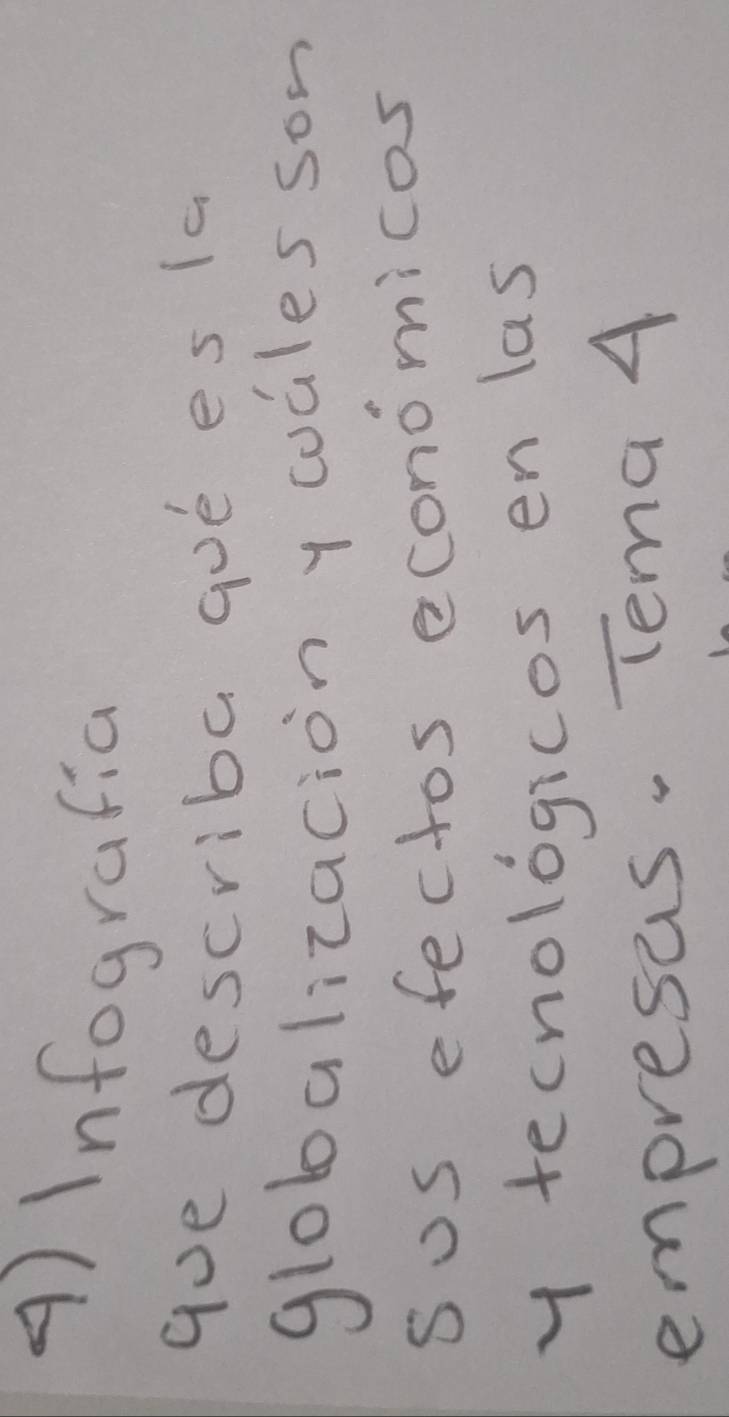 4) Infografía
que describa qué es la
globalización y cuáles son
sus efectos económicos
y tecnológicos en las
empresas. Tema 4